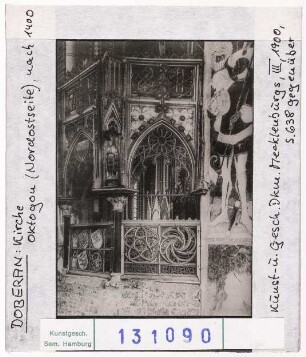 DOBERAN: Kirche
Oktogon (Nordostseite), nach 1400
Kunst-u. Gesch. Dkm. Mecklenburgs, III, 1900,
S. 638 gegenüber
Kunstgesch.
Sem. Hamburg
131090